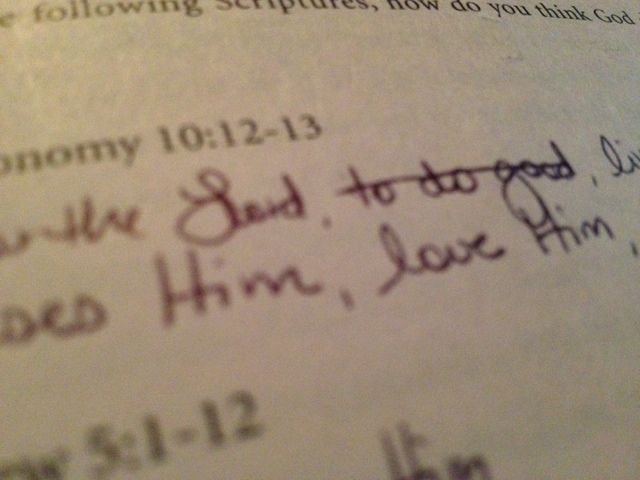 e following Scriptures, how do you think God
onomy 10:12-13
the Lord, to do good, li
ses Him, love Him,
ew 5:1-12